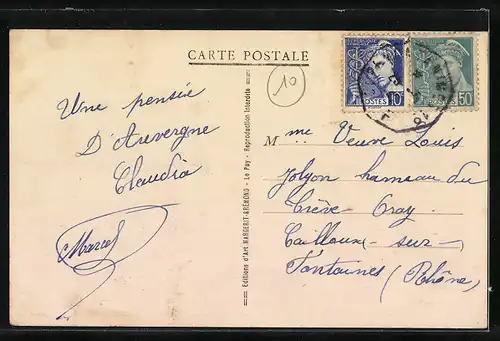 CARTE POSTALE
10
POSTES 10
POSTES 50
Une pensée
D'Auvergne
Claudia
Marcel
Editions d'Art MARGERIT-BRÉMOND - Le Puy - Reproduction interdite
Mme Veuve Louis
Jolyon hameau du
Crève Gray
Cailloux-sur-
Fontaines (Rhône)